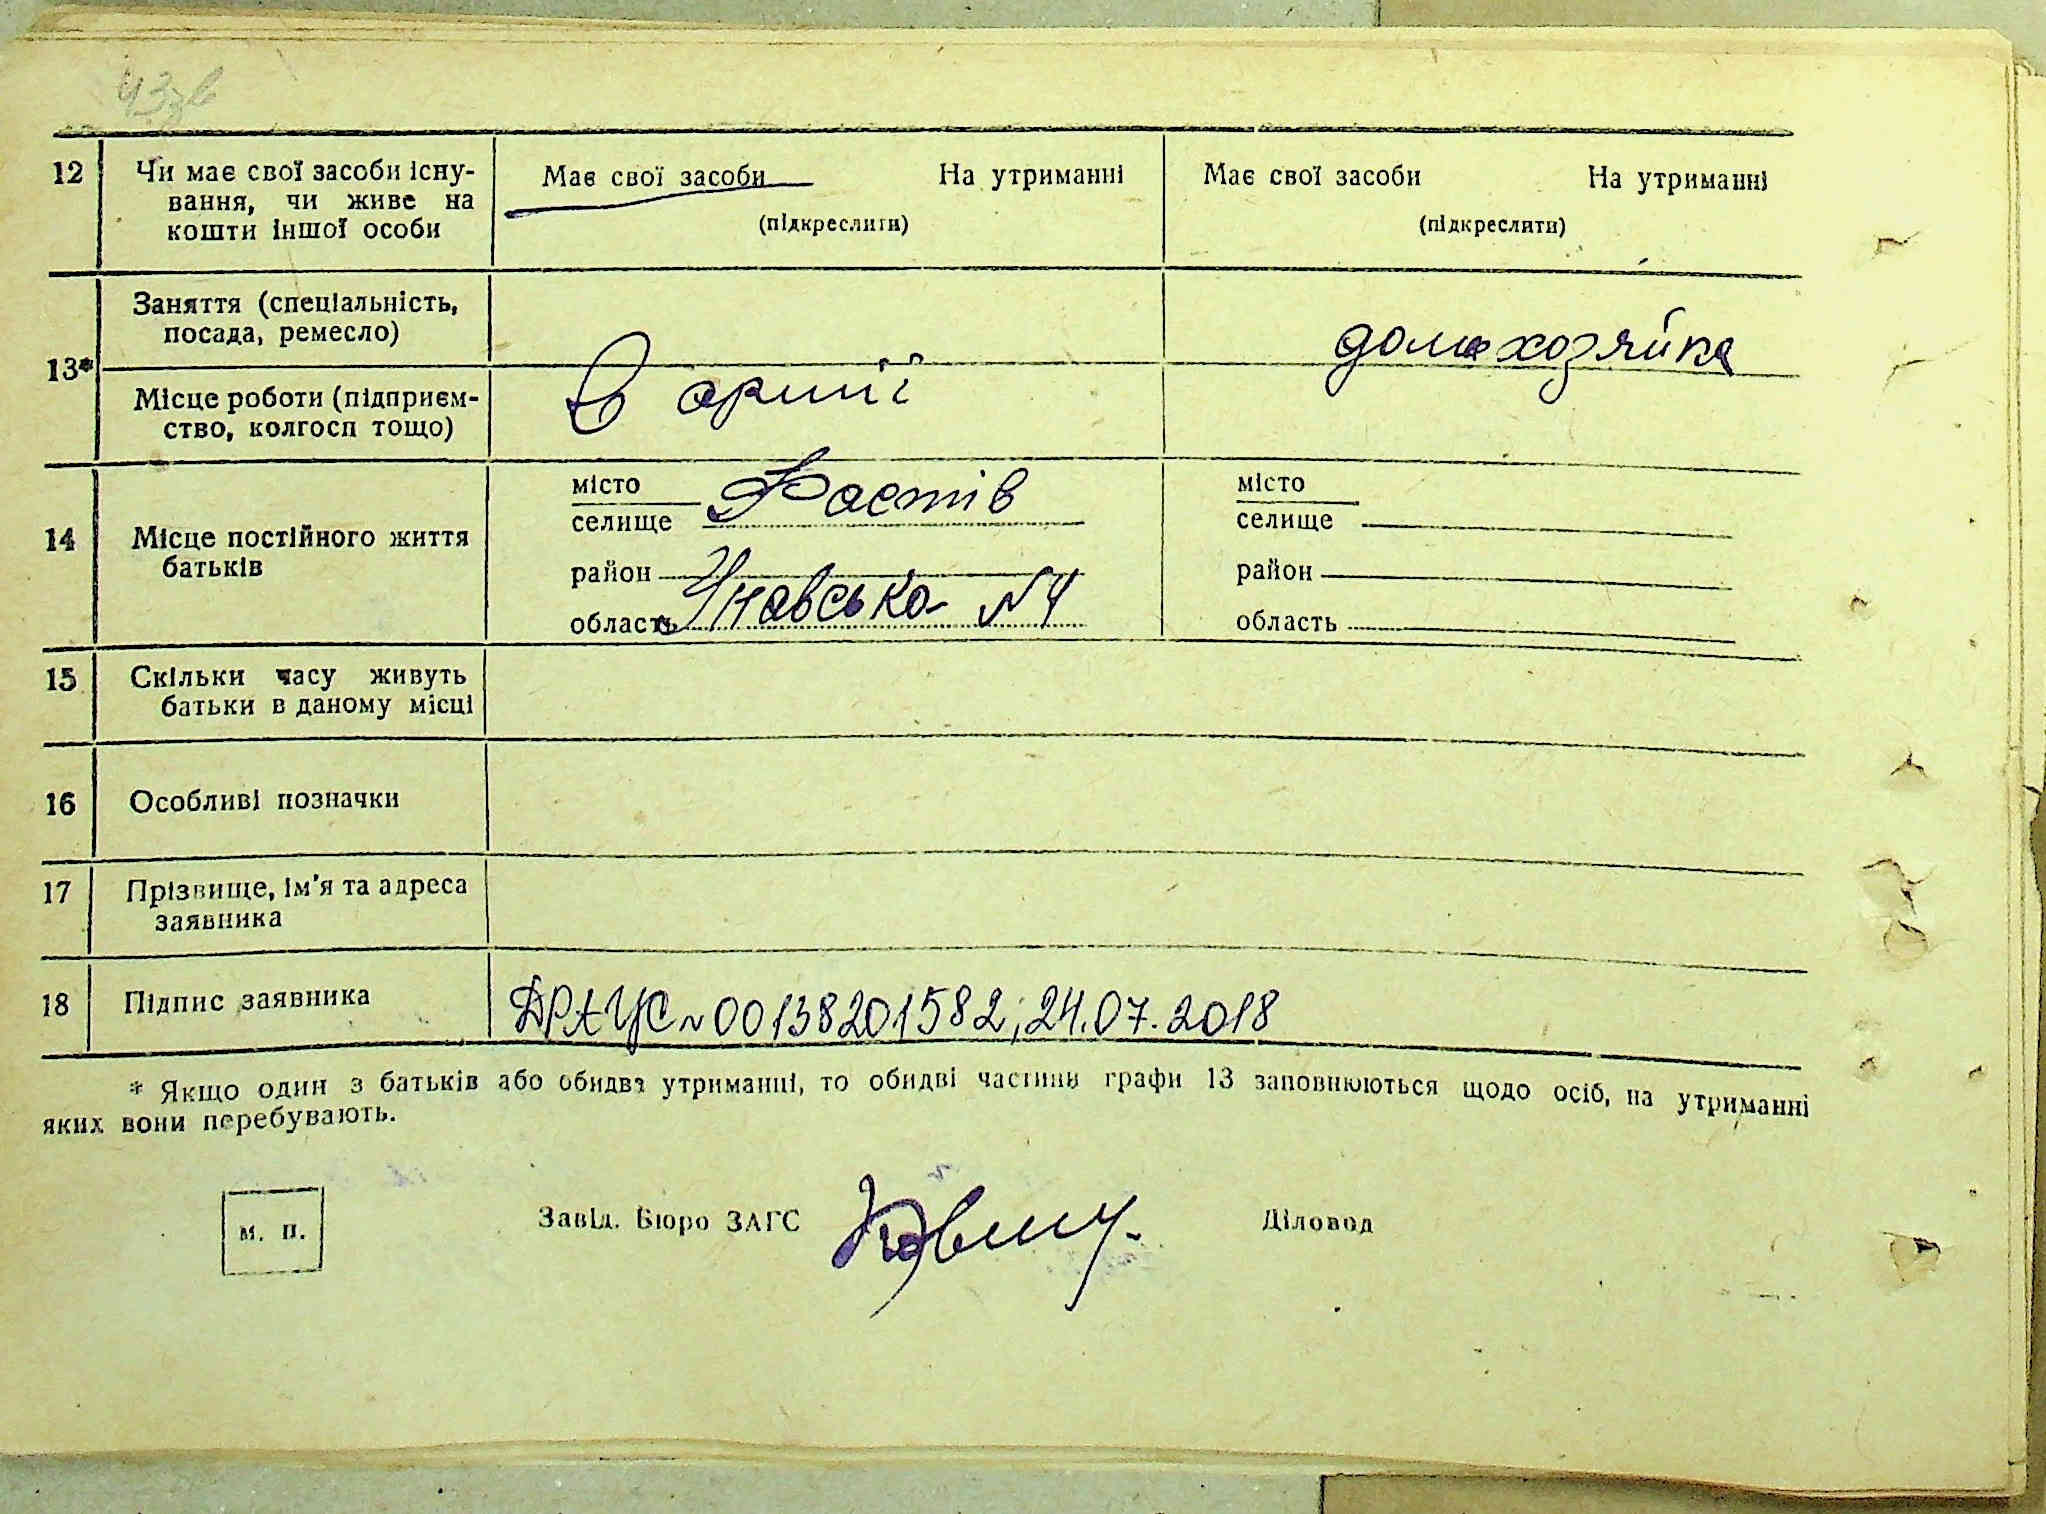 43зв
12 Чи має свої засоби існу-
вання, чи живе на
кошти іншої особи
Має свої засоби На утриманні
(підкреслити)
Має свої засоби На утриманні
(підкреслити)
13*
Заняття (спеціальність,
посада, ремесло)
домохозяйка
Місце роботи (підприєм-
ство, колгосп тощо)
В армії
14 Місце постійного життя
батьків
місто
селище Фастів
район
область Унавська №4
місто
селище
район
область
15 Скільки часу живуть
батьки в даному місці
16 Особливі позначки
17 Прізвище, ім'я та адреса
заявника
18 Підпис заявника ДРАЦС № 00138201582; 24.07.2018
* Якщо один з батьків або обидва утриманні, то обидві частини графи 13 заповнюються щодо осіб, на утриманні
яких вони перебувають.
м. п.
Завід. Бюро ЗАГС
Діловод